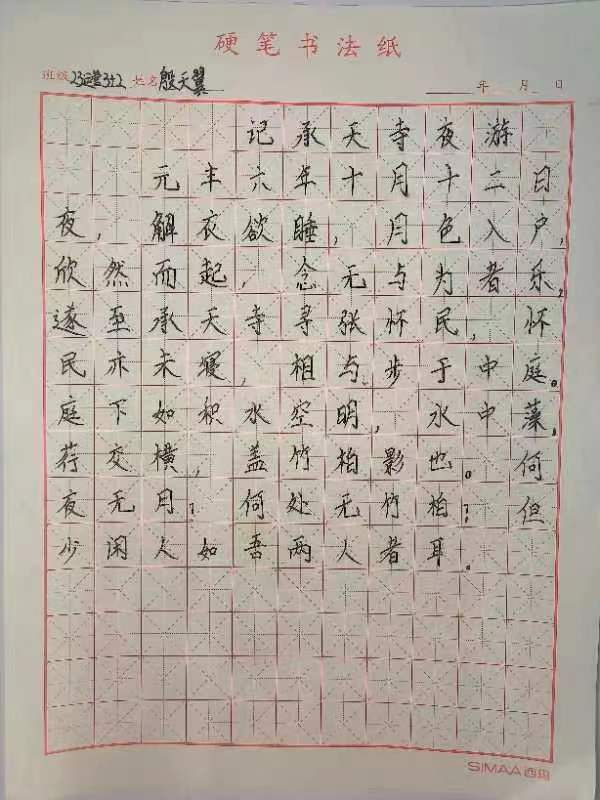 硬笔书法纸
班级 23运营3+2 姓名 殷天翼 年 月 日
记承天寺夜游
元丰六年十月十二日
夜，解衣欲睡，月色入户，
欣然而起，念无与为者乐，
遂至承天寺寻张怀民，怀
民亦未寝，相与步于中庭。
庭下如积水空明，水中藻、
荇交横，盖竹柏影也。何
夜无月？何处无竹柏？但
少闲人如吾两人者耳。
SIMAA西玛